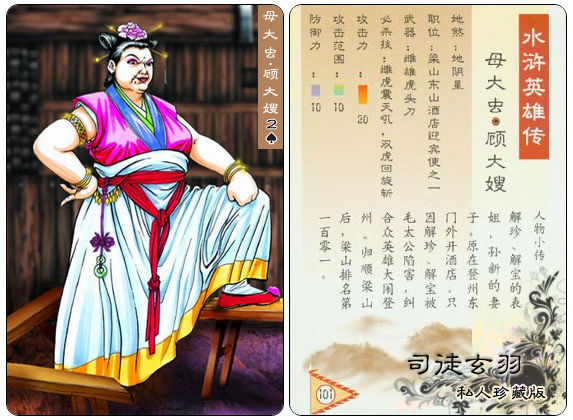 母大虫·顾大嫂
2♠
水浒英雄传
母大虫●顾大嫂
地煞：地阴星
职位：梁山东山酒店迎宾使之一
武器：雌雄虎头刀
必杀技：雌虎震天吼，双虎回旋斩
攻击力：20
攻击范围：10
防御力：10
人物小传
解珍、解宝的表
姐，孙新的妻
子。原在登州东
门外开酒店。只
因解珍、解宝被
毛太公陷害，纠
合众英雄大闹登
州。归顺梁山
后，梁山排名第
一百零一。
101
司徒玄羽
私人珍藏版